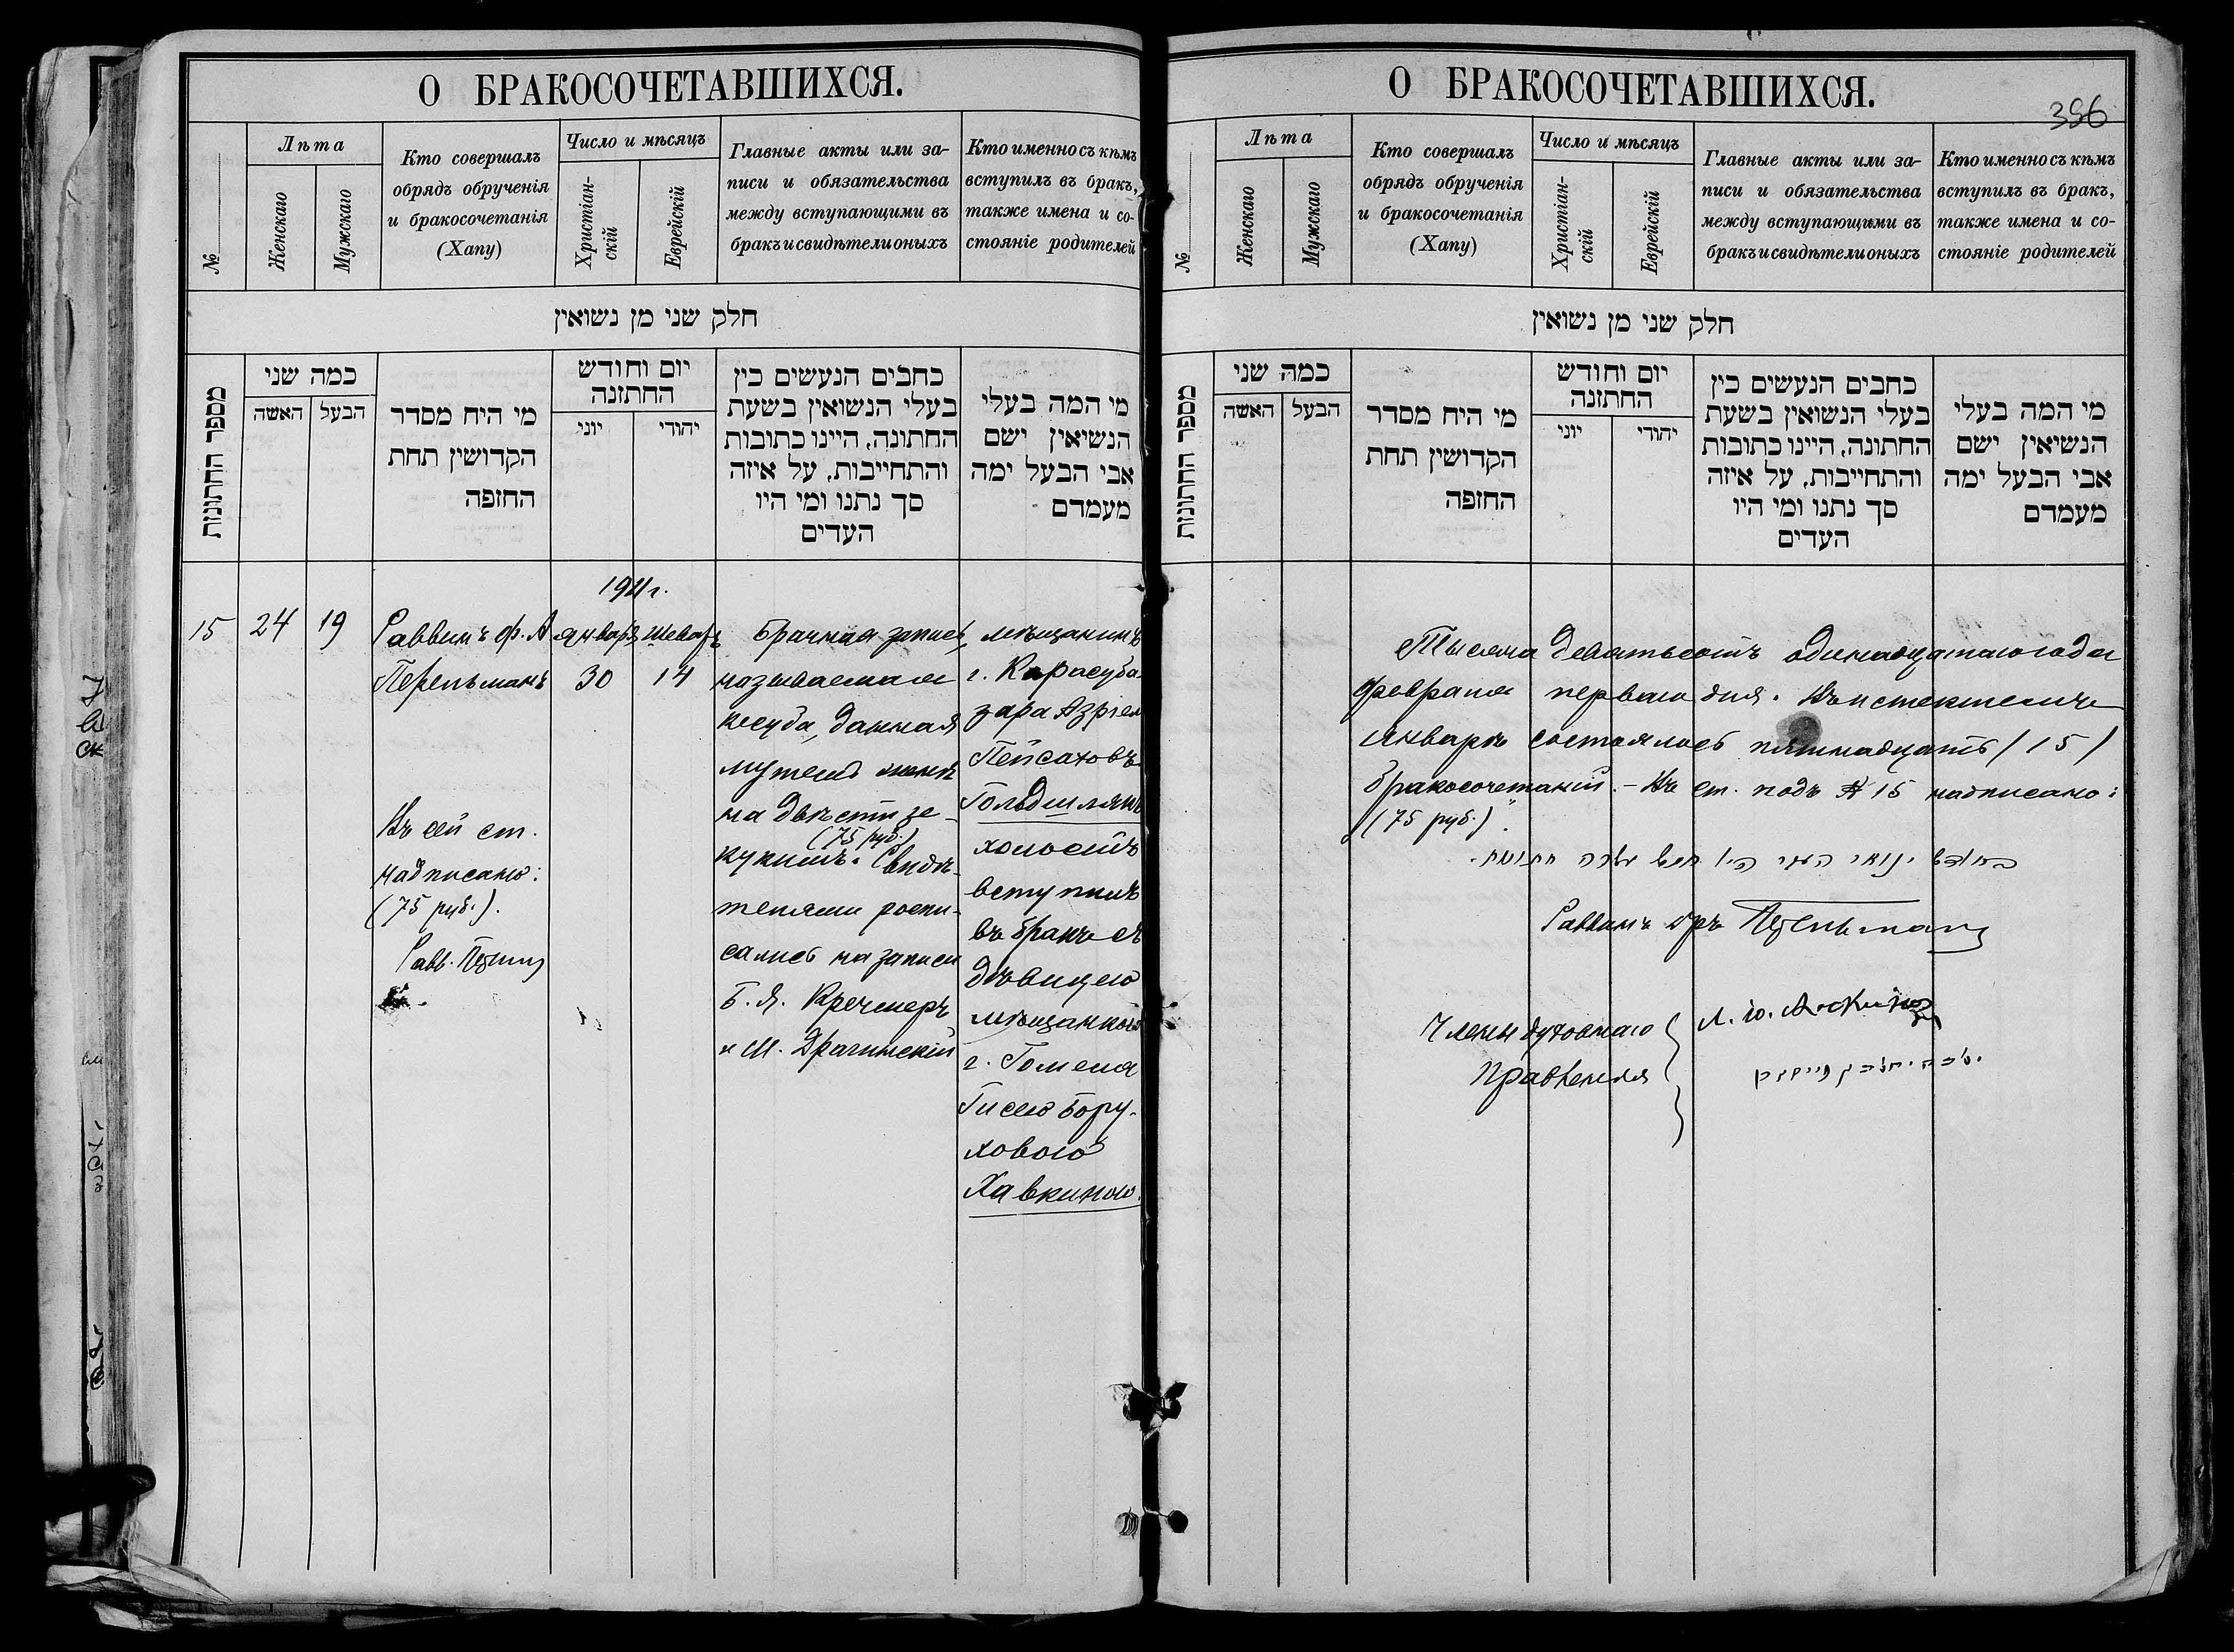 О БРАКОСОЧЕТАВШИХСЯ.
№
Лѣта
Женскаго
Мужскаго
Кто совершалъ
обрядъ обрученія
и бракосочетанія
(Хапу)
Число и мѣсяцъ
Христіан-
скій
Еврейскій
Главные акты или за-
писи и обязательства
между вступающими въ
бракъ и свидѣтели оныхъ
Кто именно съ кѣмъ
вступилъ въ бракъ,
также имена и со-
стояніе родителей
חלק שני מן נשואין
מספר החתונות
כמה שני
האשה
הבעל
מי היח מסדר
הקדושין תחת
החזפה
יום וחודש
החתזנה
יוני
יהודי
כחבים הנעשים כין
בעלי הנשואין בשעת
החתונה, היינו כתובות
והתחייבות, על איזה
סך נתנו ומי היו
העדים
מי המה בעלי
הנשיאין ישם
אבי הבעל ימה
מעמדם
1911 г.
15
24
19
Раввинъ ф. А
Перельманъ
январ
30
Шеватъ
14
Въ сей ст.
надписано:
(75 руб.).
Равв.
Брачная запись,
называемая
кесуба, данная
мужемъ женѣ
на двѣсти зе-
(75 руб.)
кукимъ. Свидѣ-
телями роспи-
сались на записи
Б. Я. Кречмеръ
и М. Драгинскій
мѣщанинъ
г. Карасуба-
зара Азріел
Пейсаховъ
Гольдшлян
холостъ
вступилъ
въ бракъ съ
дѣвицею
мѣщанкою
г. Гомеля
Гисею Бору-
ховою
Хавкиною.
О БРАКОСОЧЕТАВШИХСЯ.
396
№
Лѣта
Женскаго
Мужскаго
Кто совершалъ
обрядъ обрученія
и бракосочетанія
(Хапу)
Число и мѣсяцъ
Христіан-
скій
Еврейскій
Главные акты или за-
писи и обязательства
между вступающими въ
бракъ и свидѣтели оныхъ
Кто именно съ кѣмъ
вступилъ въ бракъ,
также имена и со-
стояніе родителей
חלק שני מן נשואין
מספר החתונות
כמה שני
האשה
הבעל
מי היח מסדר
הקדושין תחת
החזפה
יום וחודש
החתזנה
יוני
יהודי
כחבים הנעשים כין
בעלי הנשואין בשעת
החתונה, היינו כתובות
והתחייבות, על איזה
סך נתנו ומי היו
העדים
מי המה בעלי
הנשיאין ישם
אבי הבעל ימה
מעמדם
Тысяча девятьсотъ одинадцатаго года
февраля перваго дня. Въ истекшемъ
январѣ состоялось пятнадцать /15/
бракосочетаній. - Въ ст. подъ № 15 надписано:
"(75 руб.)".
בחודש ינואר העבר היו חמש עשרה חתונות.
Раввинъ дръ Перельманъ
Члены духовнаго
Правленія
Л. Ю.